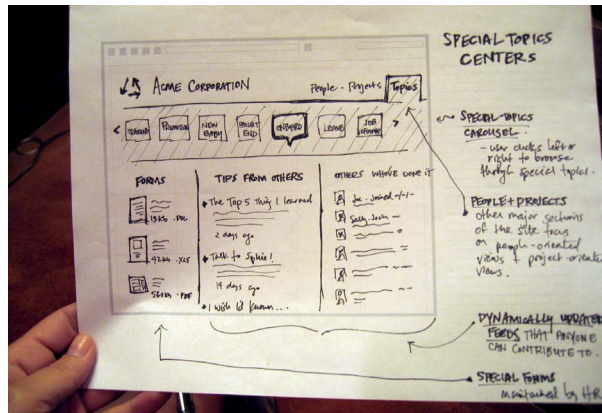 SPECIAL TOPICS
CENTERS
ACME CORPORATION
People · Projects
Topics
< TRAINING
PROMOTION
NEW
BABY
PROJECT
END
ONBOARD
LEAVE
JOB
>
FORMS
13kb .DOC
42kb .XLS
560kb .PDF
TIPS FROM OTHERS
The Top 5 Things I learned
2 days ago
Talk to Sophie!
14 days ago
I wish I'd known...
OTHERS WHO'VE DONE IT
Joe - Joined -/-/-
Sally Jackson -
SPECIAL-TOPICS
CAROUSEL.
- user clicks left or
right to browse
through special topics.
PEOPLE + PROJECTS
other major sections
of the site focus
on people-oriented
views + project-oriented
views.
DYNAMICALLY UPDATED
FEEDS THAT ANYONE
CAN CONTRIBUTE TO.
SPECIAL FORMS
maintained by HR